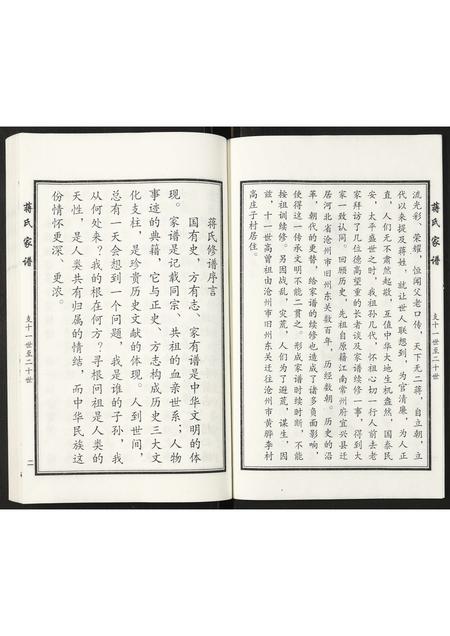 蒋氏家谱
支十一世至二十世
流光彩、荣耀，恒闻父老口传，天下无二蒋，自立朝，立
代以来提及蒋姓，就让世人联想到，为官清廉、为人正
直，人们无不肃然起敬，互值中华大地生机盎然，国泰民
安，太平盛世之时，我祖孙几代，怀祖心切一行人前去老
家拜访了几位德高望重的长者谈及家谱续修一事，得到大
家一致认同。回顾历史，先祖自原籍江南常州府宜兴县迁
居河北省沧州市旧州东关数百年，历经数朝。历史的沿
革，朝代的更替，给家谱的续修也造成了诸多负面影响，
使得这一传承文明不能一贯之。形成家谱时续时断，不能
按祖训续修。另因战乱，灾荒，人们为了避荒，谋生，因
兹，十一世高曾祖由沧州市旧州东关迁往沧州市黄骅李村
高庄子村居住。
蒋氏修谱序言
国有史、方有志、家有谱是中华文明的体
现。家谱是记载同宗、共祖的血亲世系；人物
事迹的典籍，它与正史、方志构成历史三大文
化支柱，是珍贵历史文献的体现。人到世间，
总有一天会想到一个问题，我是谁的子孙，我
从何处来？我的根在何方？寻根问祖是人类的
天性，是人类共有归属的情结，而中华民族这
份情怀更深、更浓。
蒋氏家谱
支十一世至二十世
二